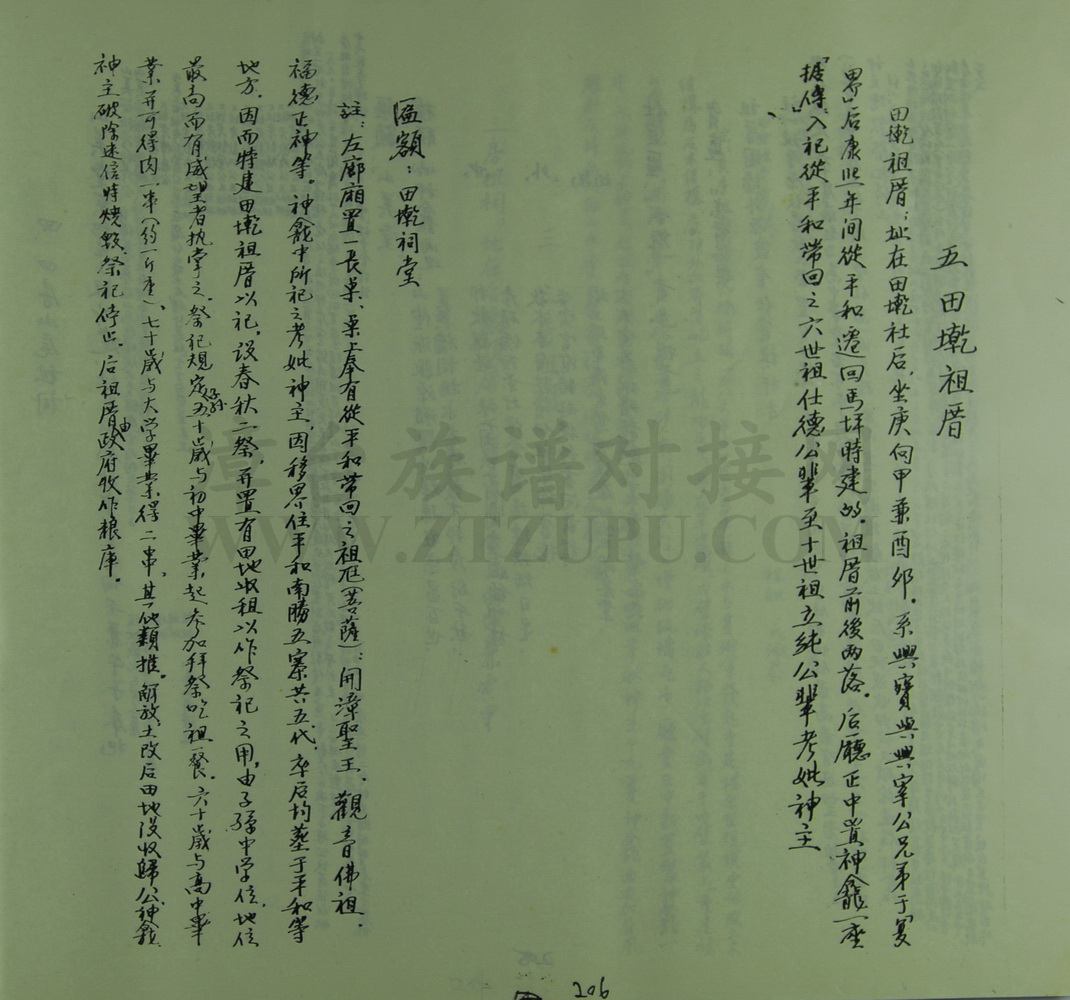 五 田墘祖厝
田墘祖厝：址在田墘社后，坐庚向甲兼酉卯。系興寶與興宰公兄弟于"复
界"后康熙年間從平和遷回馬坪時建的。祖厝前後兩落。后廳正中置神龕一座
"据傳"入祀從平和带回之六世祖仕德公輩至十世祖立純公輩考妣神主
匾額：田墘祠堂
註：左廊廂置一長桌、桌上奉有從平和带回之祖尪（菩薩）：開漳聖王、觀音佛祖、
福德正神等。神龕中所祀之考妣神主，因移界住平和南勝五寨共五代，卒后均葬于平和等
地方，因而特建田墘祖厝以祀，设春秋二祭，并置有田地收租以作祭祀之用，由子孫中学位、地位
最高而有威望者执掌之。祭祀規定子孫五十歲与初中畢業起参加拜祭吃祖一餐。六十歲与高中畢
業并可得肉一串（約一斤重）、七十歲与大学畢業得二串，其他類推。解放、土改后田地没收歸公，神龕
神主破除迷信時燒毀，祭祀停止。后祖厝由政府收作粮庫。
章者族谱对接网
WWW.ZTZUPU.COM
206